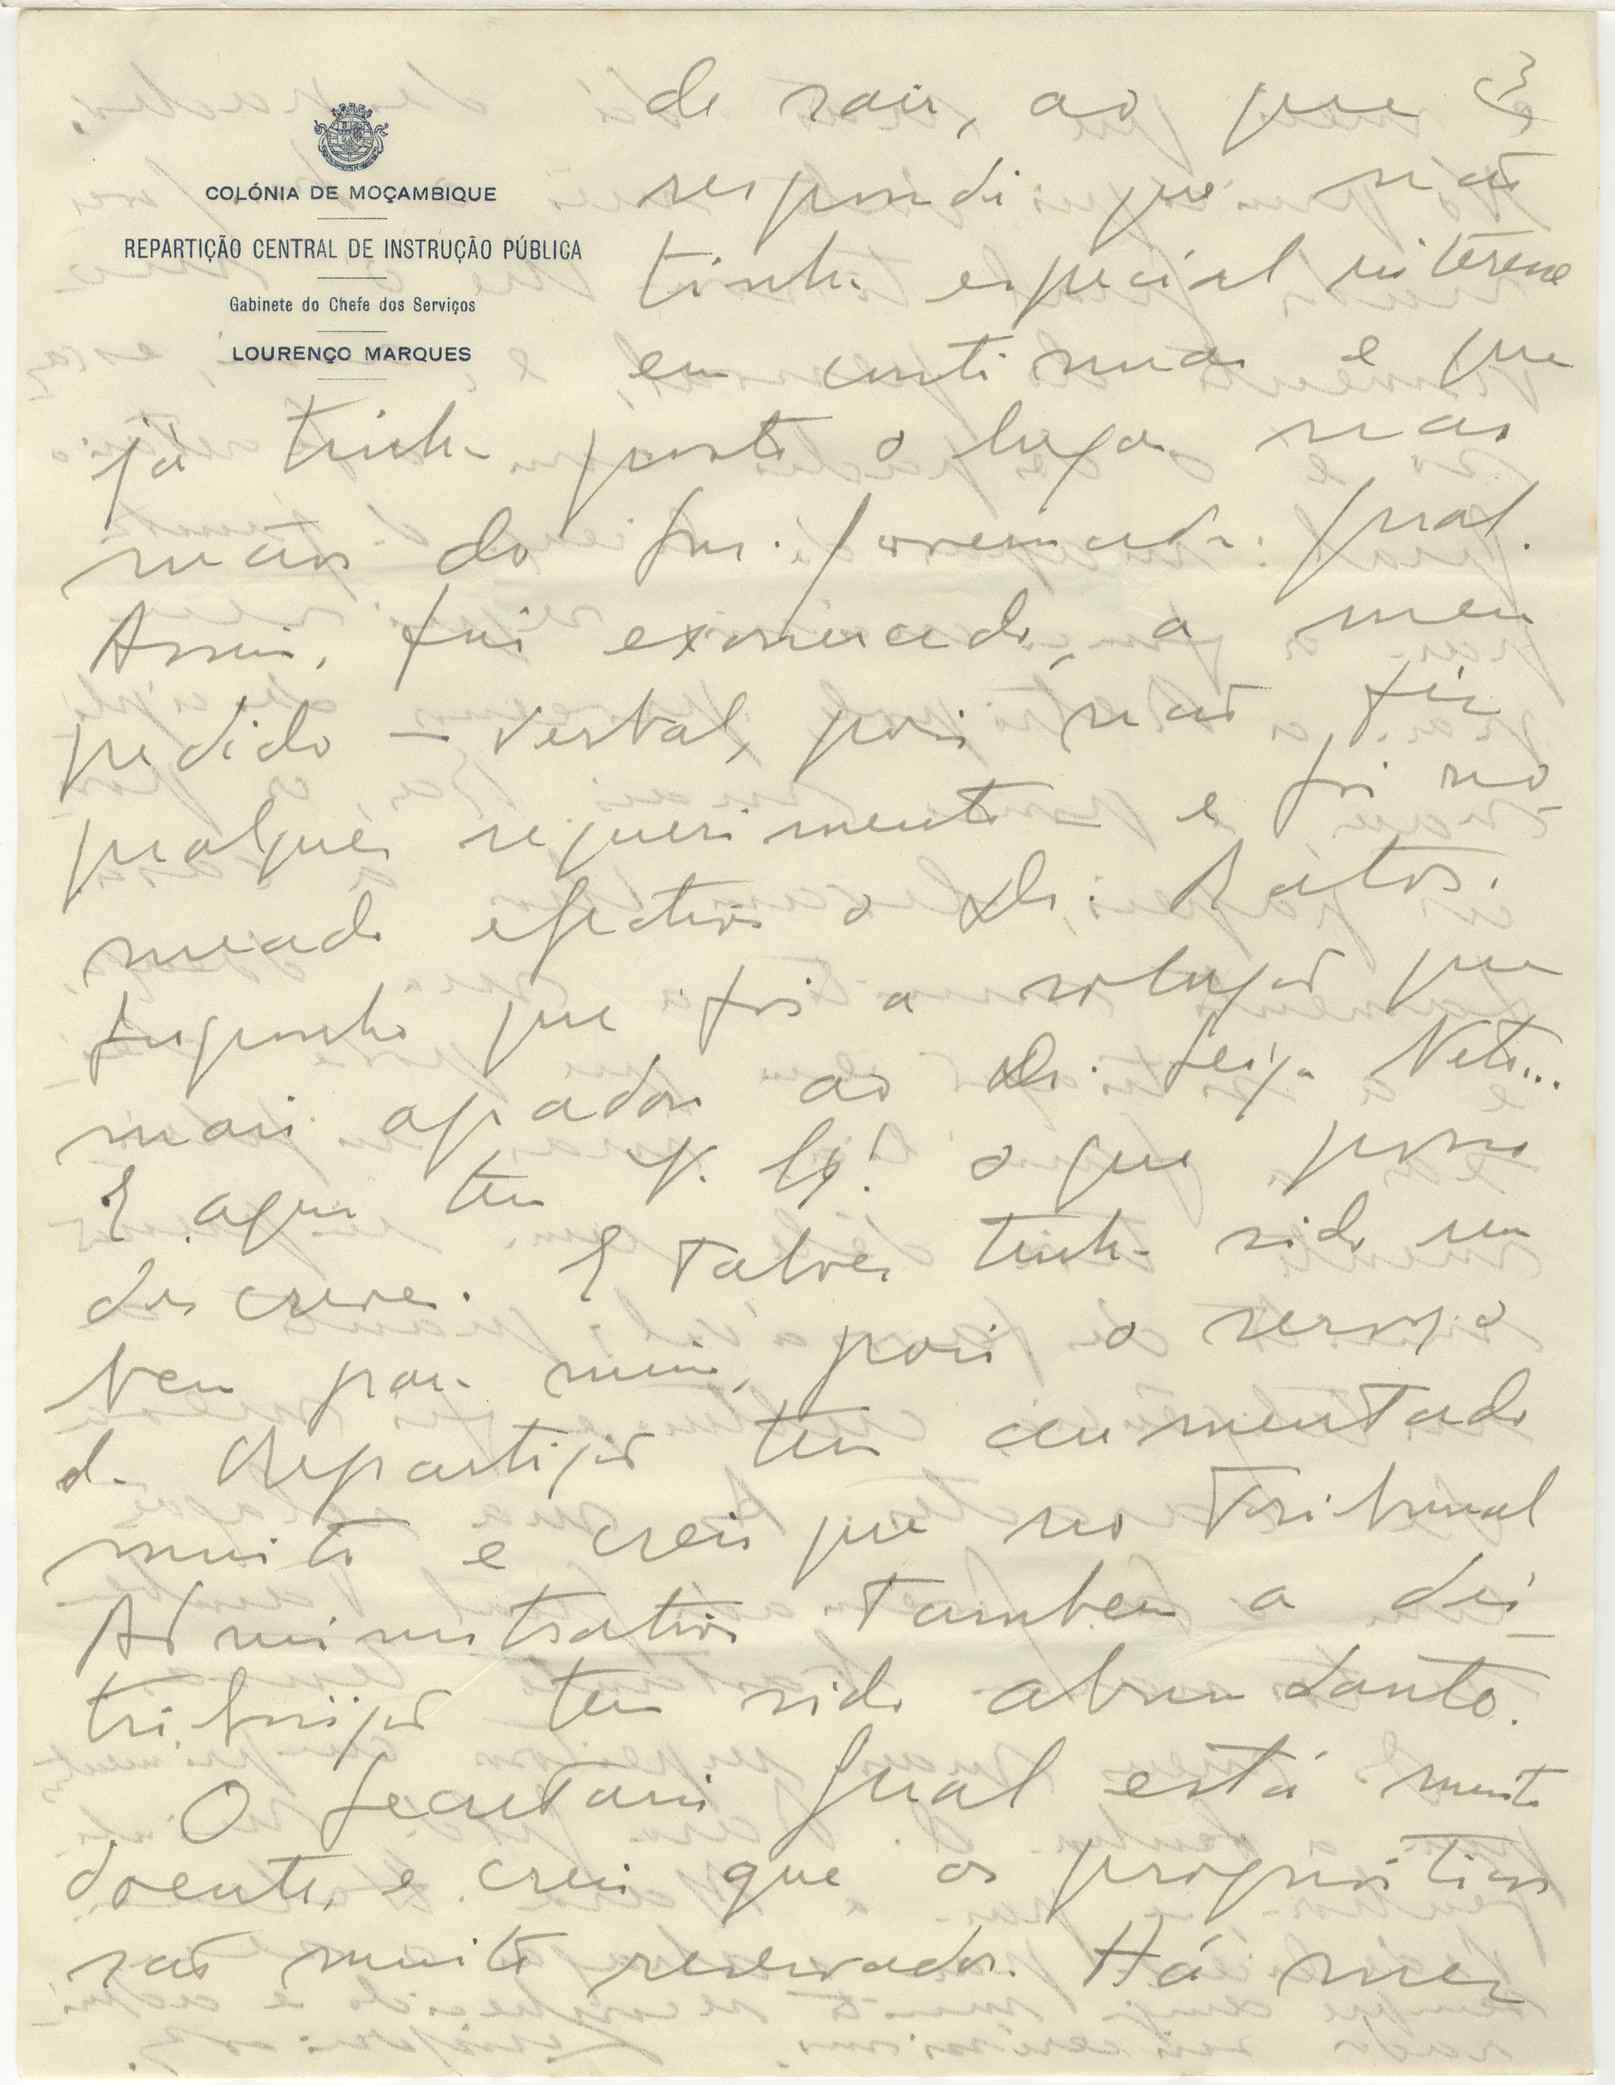 3
COLÓNIA DE MOÇAMBIQUE
REPARTIÇÃO CENTRAL DE INSTRUÇÃO PÚBLICA
Gabinete do Chefe dos Serviços
LOURENÇO MARQUES
de sair, ao que
respondi que não
tinha especial interesse
em continuar e que
já tinha posto o lugar nas
mãos do Snr. Governador Gral.
Assim, fui exonerado, a meu
pedido — verbal, pois não fiz
qualquer requerimento — e foi no-
meado efectivo o Dr. Ratos.
Suponho que foi a solução que
mais agradou ao Dr. Seiça Neto...
E aqui tem V. Exª o que posso
descrever. E talvez tenha sido um
bem para mim, pois o serviço
da Repartição tem aumentado
muito e creio que no Tribunal
Administrativo tambem a dis-
tribuição tem sido abundante.
O Secretario Gral está muito
doente, e creio que os prognósticos
são muito reservados. Há mez